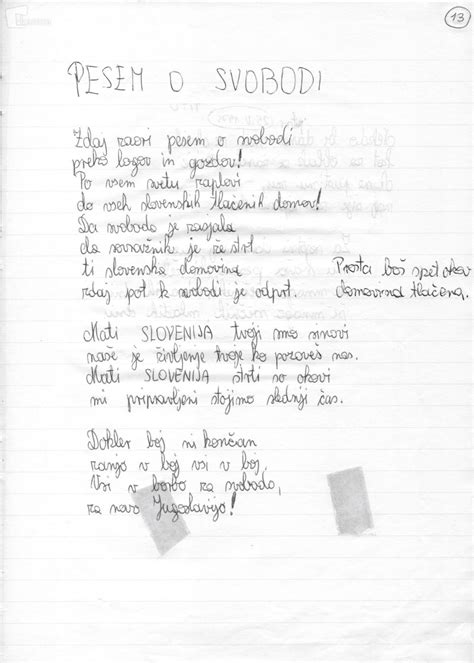 13
PESEM O SVOBODI
Zdaj zaori pesem o svobodi
preko logov in gozdov!
Po vsem svetu zaplovi
do vseh slovenskih tlačenih domov!
Da svoboda je zasjala
da sovražnik je že strt
ti slovenska domovina
zdaj pot k svobodi je odprt.
Prosta boš spet okov
domovina tlačena.
Mati SLOVENIJA tvoji smo sinovi
naše je življenje tvoje ko pozoveš nas.
Mati SLOVENIJA strti so okovi
mi pripravljeni stojimo slednji čas.
Dokler boj ni končan
zanjo v boj vsi v boj,
Vsi v borbo za svobodo,
za novo Jugoslavijo!